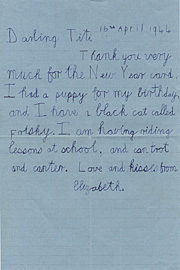 16th April 1966
Darling Titi
Thank you very
much for the New Year card.
I had a puppy for my birthday,
and I have a black cat called
Frisky. I am having riding
lessons at school, and can trot
and canter. Love and kisses from
Elizabeth.